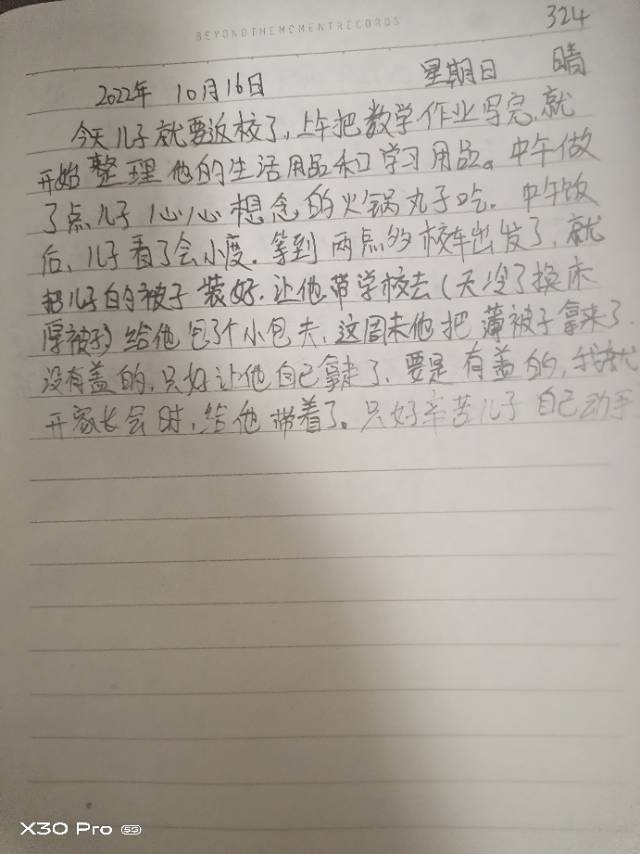 BEYONDTHEMOMENTRECORDS
324
2022年 10月16日 星期日 晴
今天儿子就要返校了,上午把数学作业写完,就
开始整理他的生活用品和学习用品。中午做
了点儿子心心想念的火锅丸子吃。中午饭
后、儿子看了会小度.等到两点多校车出发了,就
把儿子的被子装好.让他带学校去(天冷了换床
厚被子)给他包了个小包夫,这周末他把薄被子拿来了,
没有盖的,只好让他自己拿走了,要是有盖的,我就
开家长会时,给他带着了。只好辛苦儿子自己动手
X30 Pro 5G